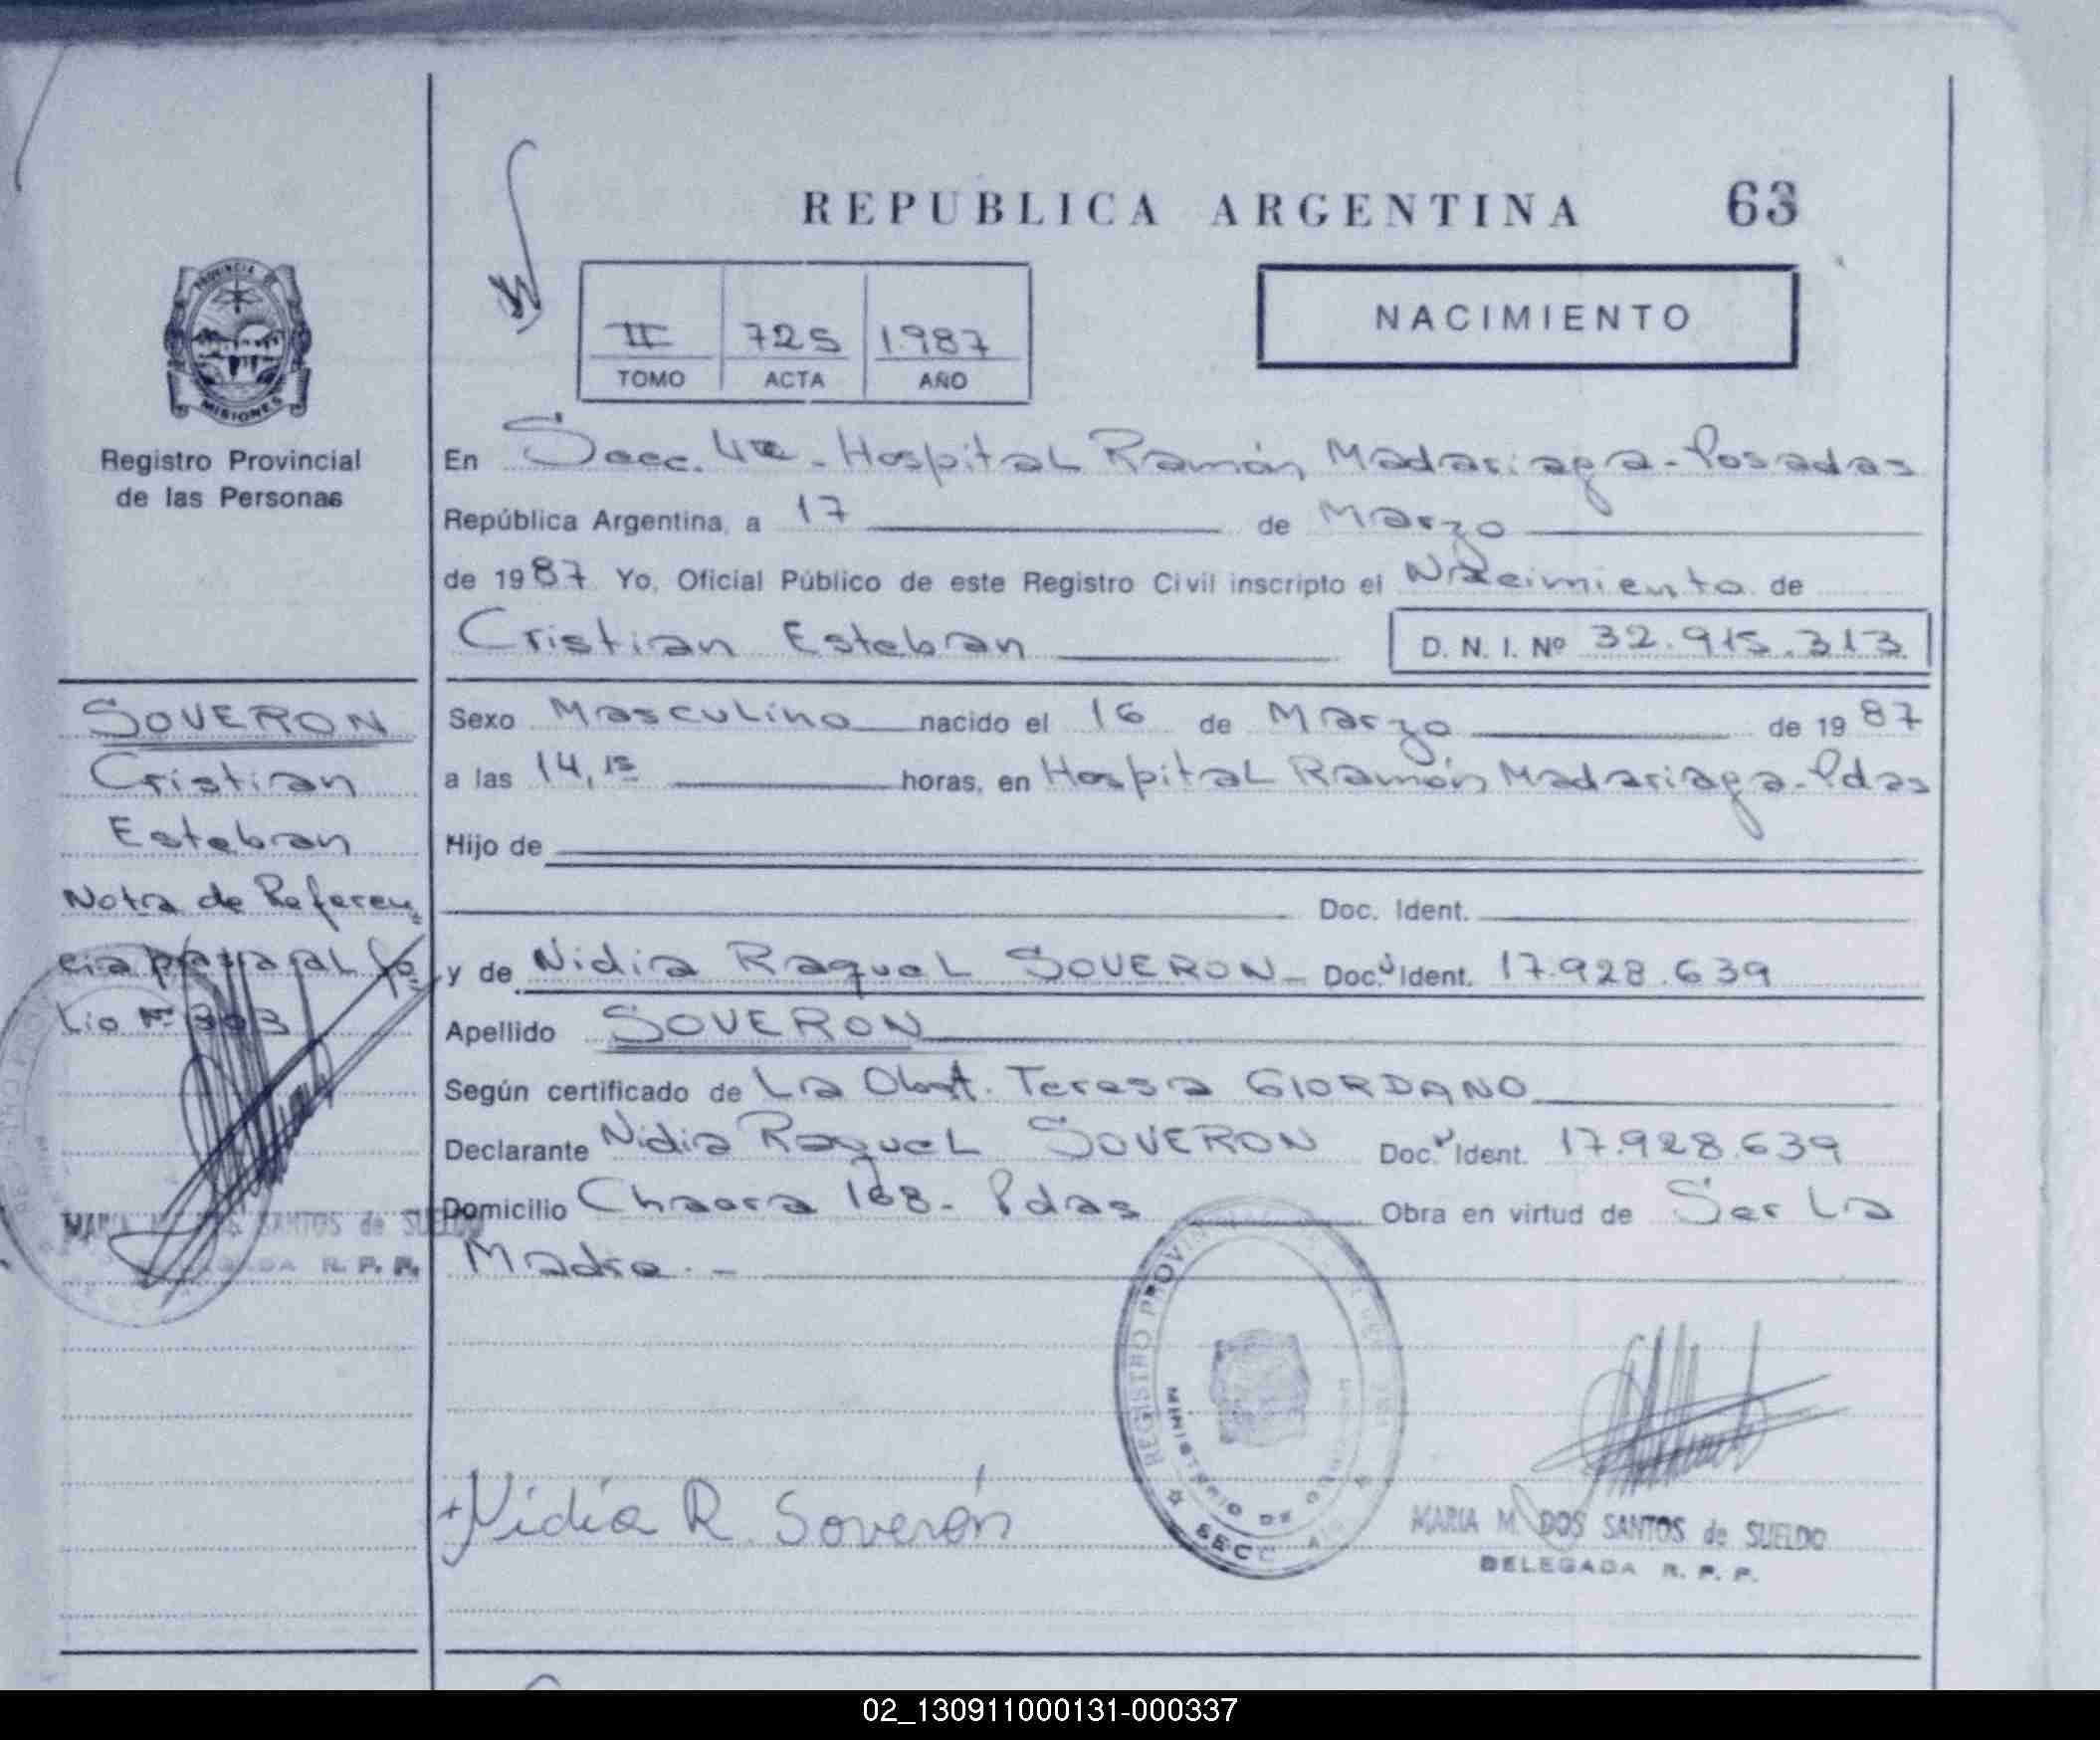 REPUBLICA ARGENTINA 63
NACIMIENTO
II 725 1987
TOMO ACTA AÑO
PROVINCIA DE
MISIONES
Registro Provincial
de las Personas
En Secc. 4ta - Hospital Ramón Madariaga - Posadas
República Argentina, a 17 de Marzo
de 1987 Yo, Oficial Público de este Registro Civil inscripto el Nacimiento de
Cristian Esteban D. N. I. Nº 32.915.313
Sexo Masculino nacido el 16 de Marzo de 1987
a las 14,15 horas, en Hospital Ramón Madariaga - Pdas
Hijo de
Doc. Ident.
y de Nidia Raquel SOVERON - Doc. Ident. 17.928.639
Apellido SOVERON
Según certificado de La Obst. Teresa GIORDANO
Declarante Nidia Raquel SOVERON Doc. Ident. 17.928.639
Domicilio Chacra 168 - Pdas Obra en virtud de Ser La
Madre. -
SOVERON
Cristian
Esteban
Nota de Referen
cia pasa al fo
lio Nº 303
MARIA M. DOS SANTOS de SUELDO
DELEGADA R. P. P.
REGISTRO PROVINCIAL
MINISTERIO DE
SECC
Nidia R. Soverón
MARIA M. DOS SANTOS de SUELDO
DELEGADA R. P. P.
02_130911000131-000337